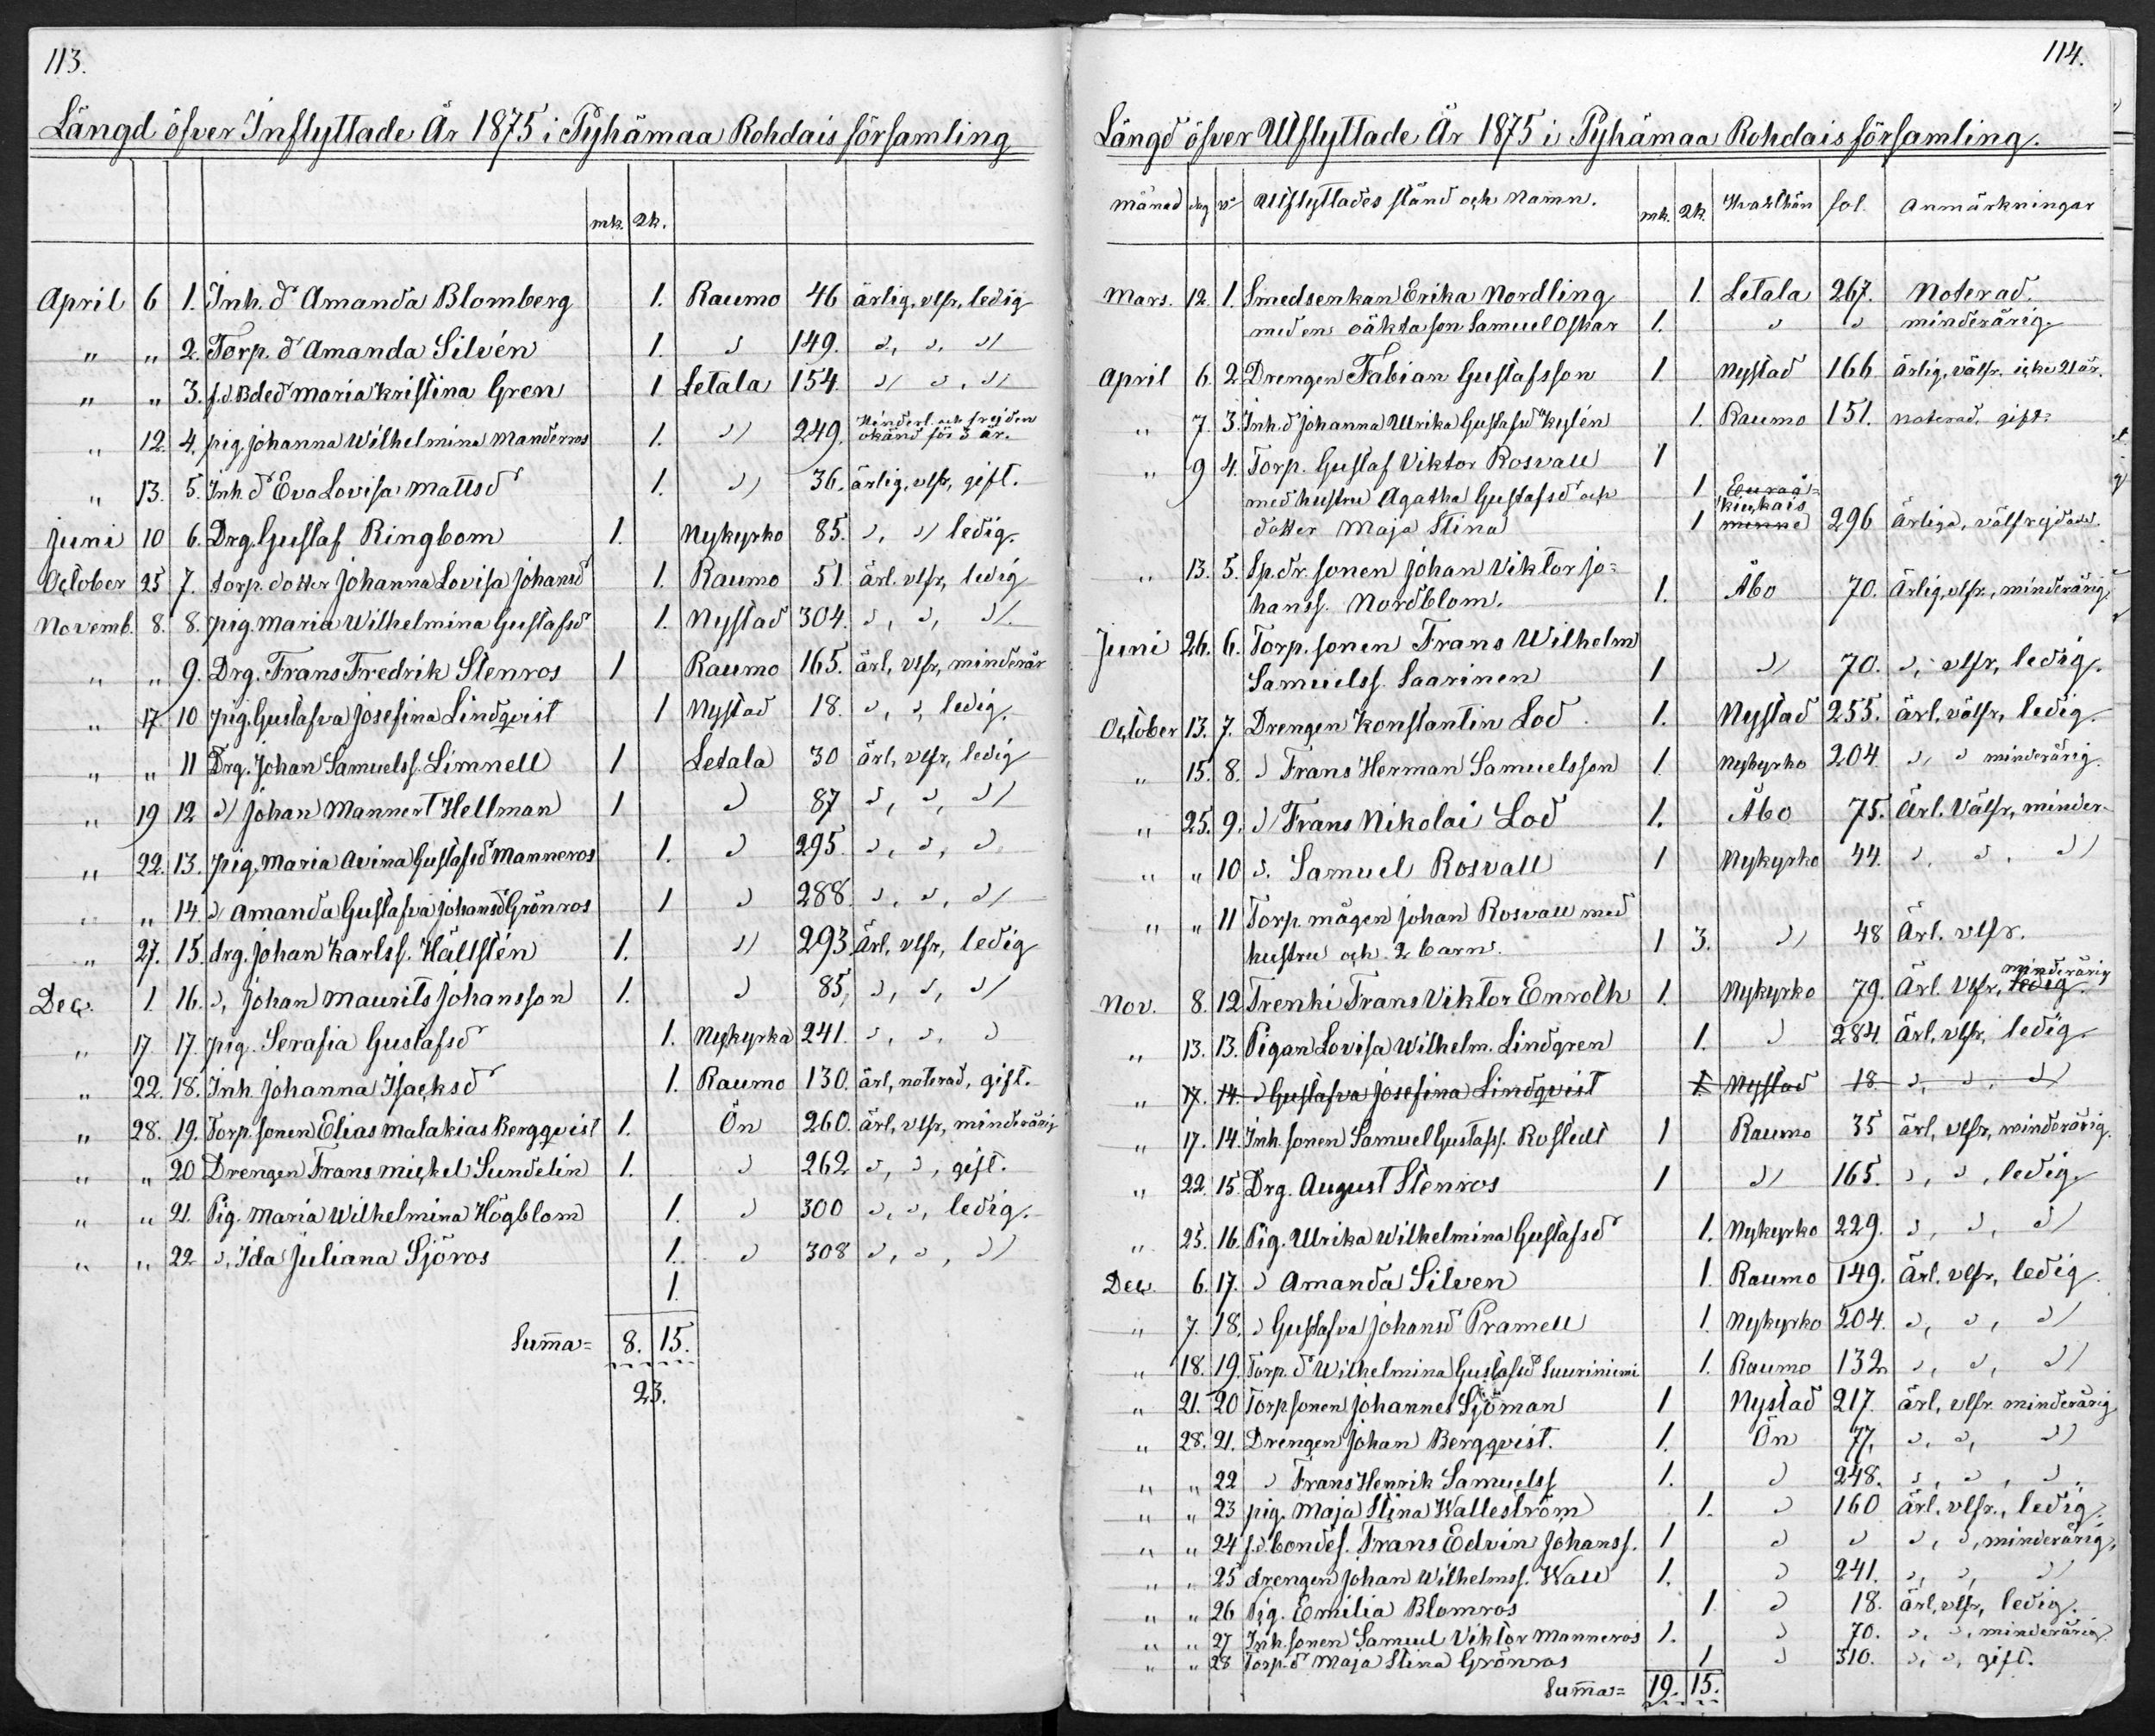 113.
Längd öfver Inflyttade År 1875 i Pyhämaa Rohdais församling
mk. Qk.
April 6 1. Inh. d Amanda Blomberg 1. Raumo 46 ärlig, vlfr, ledig
" " 2. Torp. d Amanda Silvén 1. " 149. ", ", "
" " 3. f.d. Bded Maria Kristina Gren 1 Letala 154 " ", "
" 12. 4. pig. Johanna Wilhelmina Manderros 1. " 249. okänd för 3 år.
" 13. 5. Inh. d Eva Lovisa Mattsd 1. " 36. ärlig, vlfr, gift.
Juni 10 6. Drg. Gustaf Ringbom 1. Nykyrko 85. ", " ledig.
October 25 7. torp. dotter Johanna Lovisa Johansd 1. Raumo 51. ärl. vlfr, ledig
Novemb. 8. 8. pig. Maria Wilhelmina Gustafsd 1. Nystad 304. ", ", "
" " 9. Drg. Frans Fredrik Stenros 1 Raumo 165. ärl, vlfr, minderår
" 17 10 pig. Gustafva Josefina Lindqvist 1 Nystad 18. ", ", ledig.
" " 11 Drg. Johan Samuelss. Limnell 1 Letala 30 ärl, vlfr, ledig
" 19 12 " Johan Mannert Hellman 1 " 87 ", ", "
" 22. 13. pig. Maria Avina Gustafsd Manneros 1. " 295. ", ", "
" " 14. " Amanda Gustafva Johansd Grönros 1 " 288. ", ", "
" 27. 15. drg. Johan Karlss. Hällstén 1. " 293 Ärl, vlfr, ledig
Dec. 1 16. ", Johan Maurits Johansson 1. " 85, ", ", "
" 17 17. pig. Serafia Gustafsd 1. Nykyrka 241. ", ", "
" 22. 18. Inh. Johanna Isacksd 1. Raumo 130. ärl, noterad, gift.
" 28. 19. Torp. sonen Elias Malakias Bergqvist 1. Ön 260. ärl, vlfr, minderårig
" " 20 Drengen Frans Mickel Sundelin 1. " 262 ", ", gift.
" " 21. Pig. Maria Wilhelmina Högblom 1. " 300 ", ", ledig.
" " 22 ", Ida Juliana Sjöros 1. " 308 ", ", "
1.
Summa= 8. 15.
23.
114.
Längd öfver Utflyttade År 1875 i Pyhämaa Rohdais församling.
månad dag No Utflyttades stånd och Namn. mk. Qk. Hvarthän fol. Anmärkningar
Mars. 12. 1. Smedsenkan Erika Nordling 1. Letala 267. Noterad.
med en oäkta son Samuel Oskar 1. " " minderårig.
April 6. 2 Drengen Fabian Gustafsson 1. Nystad 166 ärlig, välfr. icke 21 år.
" 7. 3. Inh. d Johanna Ulrika Gustafsd Kylén 1. Raumo 151. noterad, gift.
" 9 4. Torp. Gustaf Viktor Rosvall 1
med hustru Agatha Gustafsd och 1 Eurå=
kiukais
dotter Maja Stina 1 minne 296 ärliga, välfrejdade.
" 13. 5. Sp. dr. sonen Johan Viktor Jo=
hanss. Nordblom. 1. Åbo 70. Ärlig, vlfr., minderårig
Juni 26. 6. Torp. sonen Frans Wilhelm
Samuelss. Saarinen 1 " 70. ", vlfr, ledig.
October 13. 7. Drengen Konstantin Lod 1. Nystad 255. ärl. välfr, ledig.
" 15. 8. " Frans Herman Samuelsson 1. Nykyrko 204 ", " minderårig.
" 25. 9. " Frans Nikolai Lod 1. Åbo 75. Ärl. Välfr, minder-
" " 10 ". Samuel Rosvall 1 Nykyrko 44. ", ", "
" " 11 Torp. mågen Johan Rosvall med
hustru och 2 barn. 1 3. " 48 Ärl. vlfr.
minderårig
Nov. 8. 12 Trenki Frans Viktor Enrolh 1. Nykyrko 79. Ärl. Vlfr, ledig.
" 13. 13. Pigan Lovisa Wilhelm. Lindgren 1. " 284. Ärl. vlfr, ledig.
" 17. 14. " Gustafva Josefina Lindqvist 1. Nystad 18. ", ", "
" 17. 14. Inh. sonen Samuel Gustafs. Rostedt 1 Raumo 35 ärl, vlfr, minderårig.
" 22. 15 Drg. August Stenros 1 " 165. ", ", ledig.
" 25. 16. Pig. Ulrika Wilhelmina Gustafsd 1. Nykyrko 229. ", ", "
Dec. 6. 17. " Amanda Silven 1. Raumo 149. Ärl. vlfr, ledig.
" 7. 18. " Gustafva Johansd Pramell 1. Nykyrko 204. ", ", "
" 18. 19. Torp. d Wilhelmina Gustafsd Suuriniemi 1. Raumo 132 ", ", "
" 21. 20 Torp sonen Johannes Sjöman 1 Nystad 217. ärl, vlfr. minderårig
" 28. 21. Drengen Johan Bergqvist. 1. Ön 77, ", ", "
" " 22 " Frans Henrik Samuelss 1. " 248. ", ", "
" " 23 pig. Maja Stina Walleström 1. " 160 ärl. vlfr., ledig.
" " 24 f.d. bondes. Frans Edvin Johanss. 1 " " ", ", minderårig,
" " 25 drengen Johan Wilhelmss. Wall 1. " 241. ", ", "
" " 26 Pig. Emilia Blomros 1. " 18. ärl, vlfr, ledig.
" " 27 Inh. sonen Samuel Viktor Manneros 1. " 70. ", ", minderårig.
" " 28 Torp. d Maja Stina Grönros 1 " 310. ", ", gift.
Summa= 19. 15.